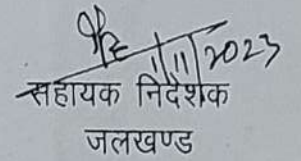 1/11/2023
सहायक निदेशक
जलखण्ड